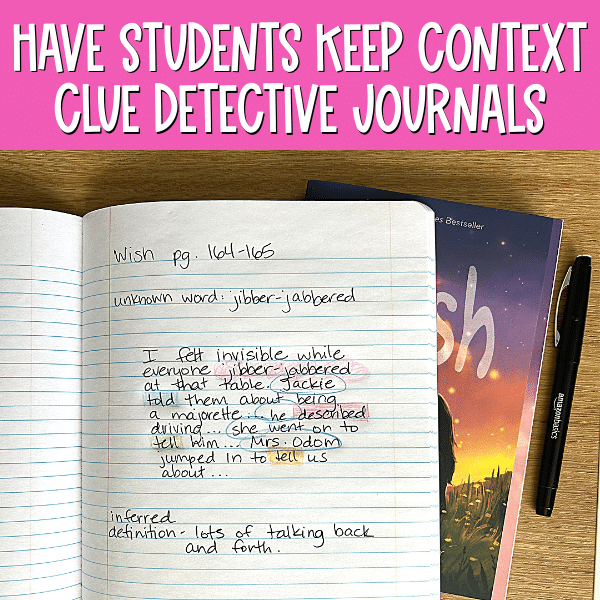 HAVE STUDENTS KEEP CONTEXT
CLUE DETECTIVE JOURNALS
Wish pg. 164-165
unknown word: jibber-jabbered
I felt invisible while
everyone jibber-jabbered
at that table. Jackie
told them about being
a majorette... he described
driving... she went on to
tell him... Mrs. Odom
jumped in to tell us
about...
inferred
definition- lots of talking back
and forth.
es Bestseller
sh
amazonbasics